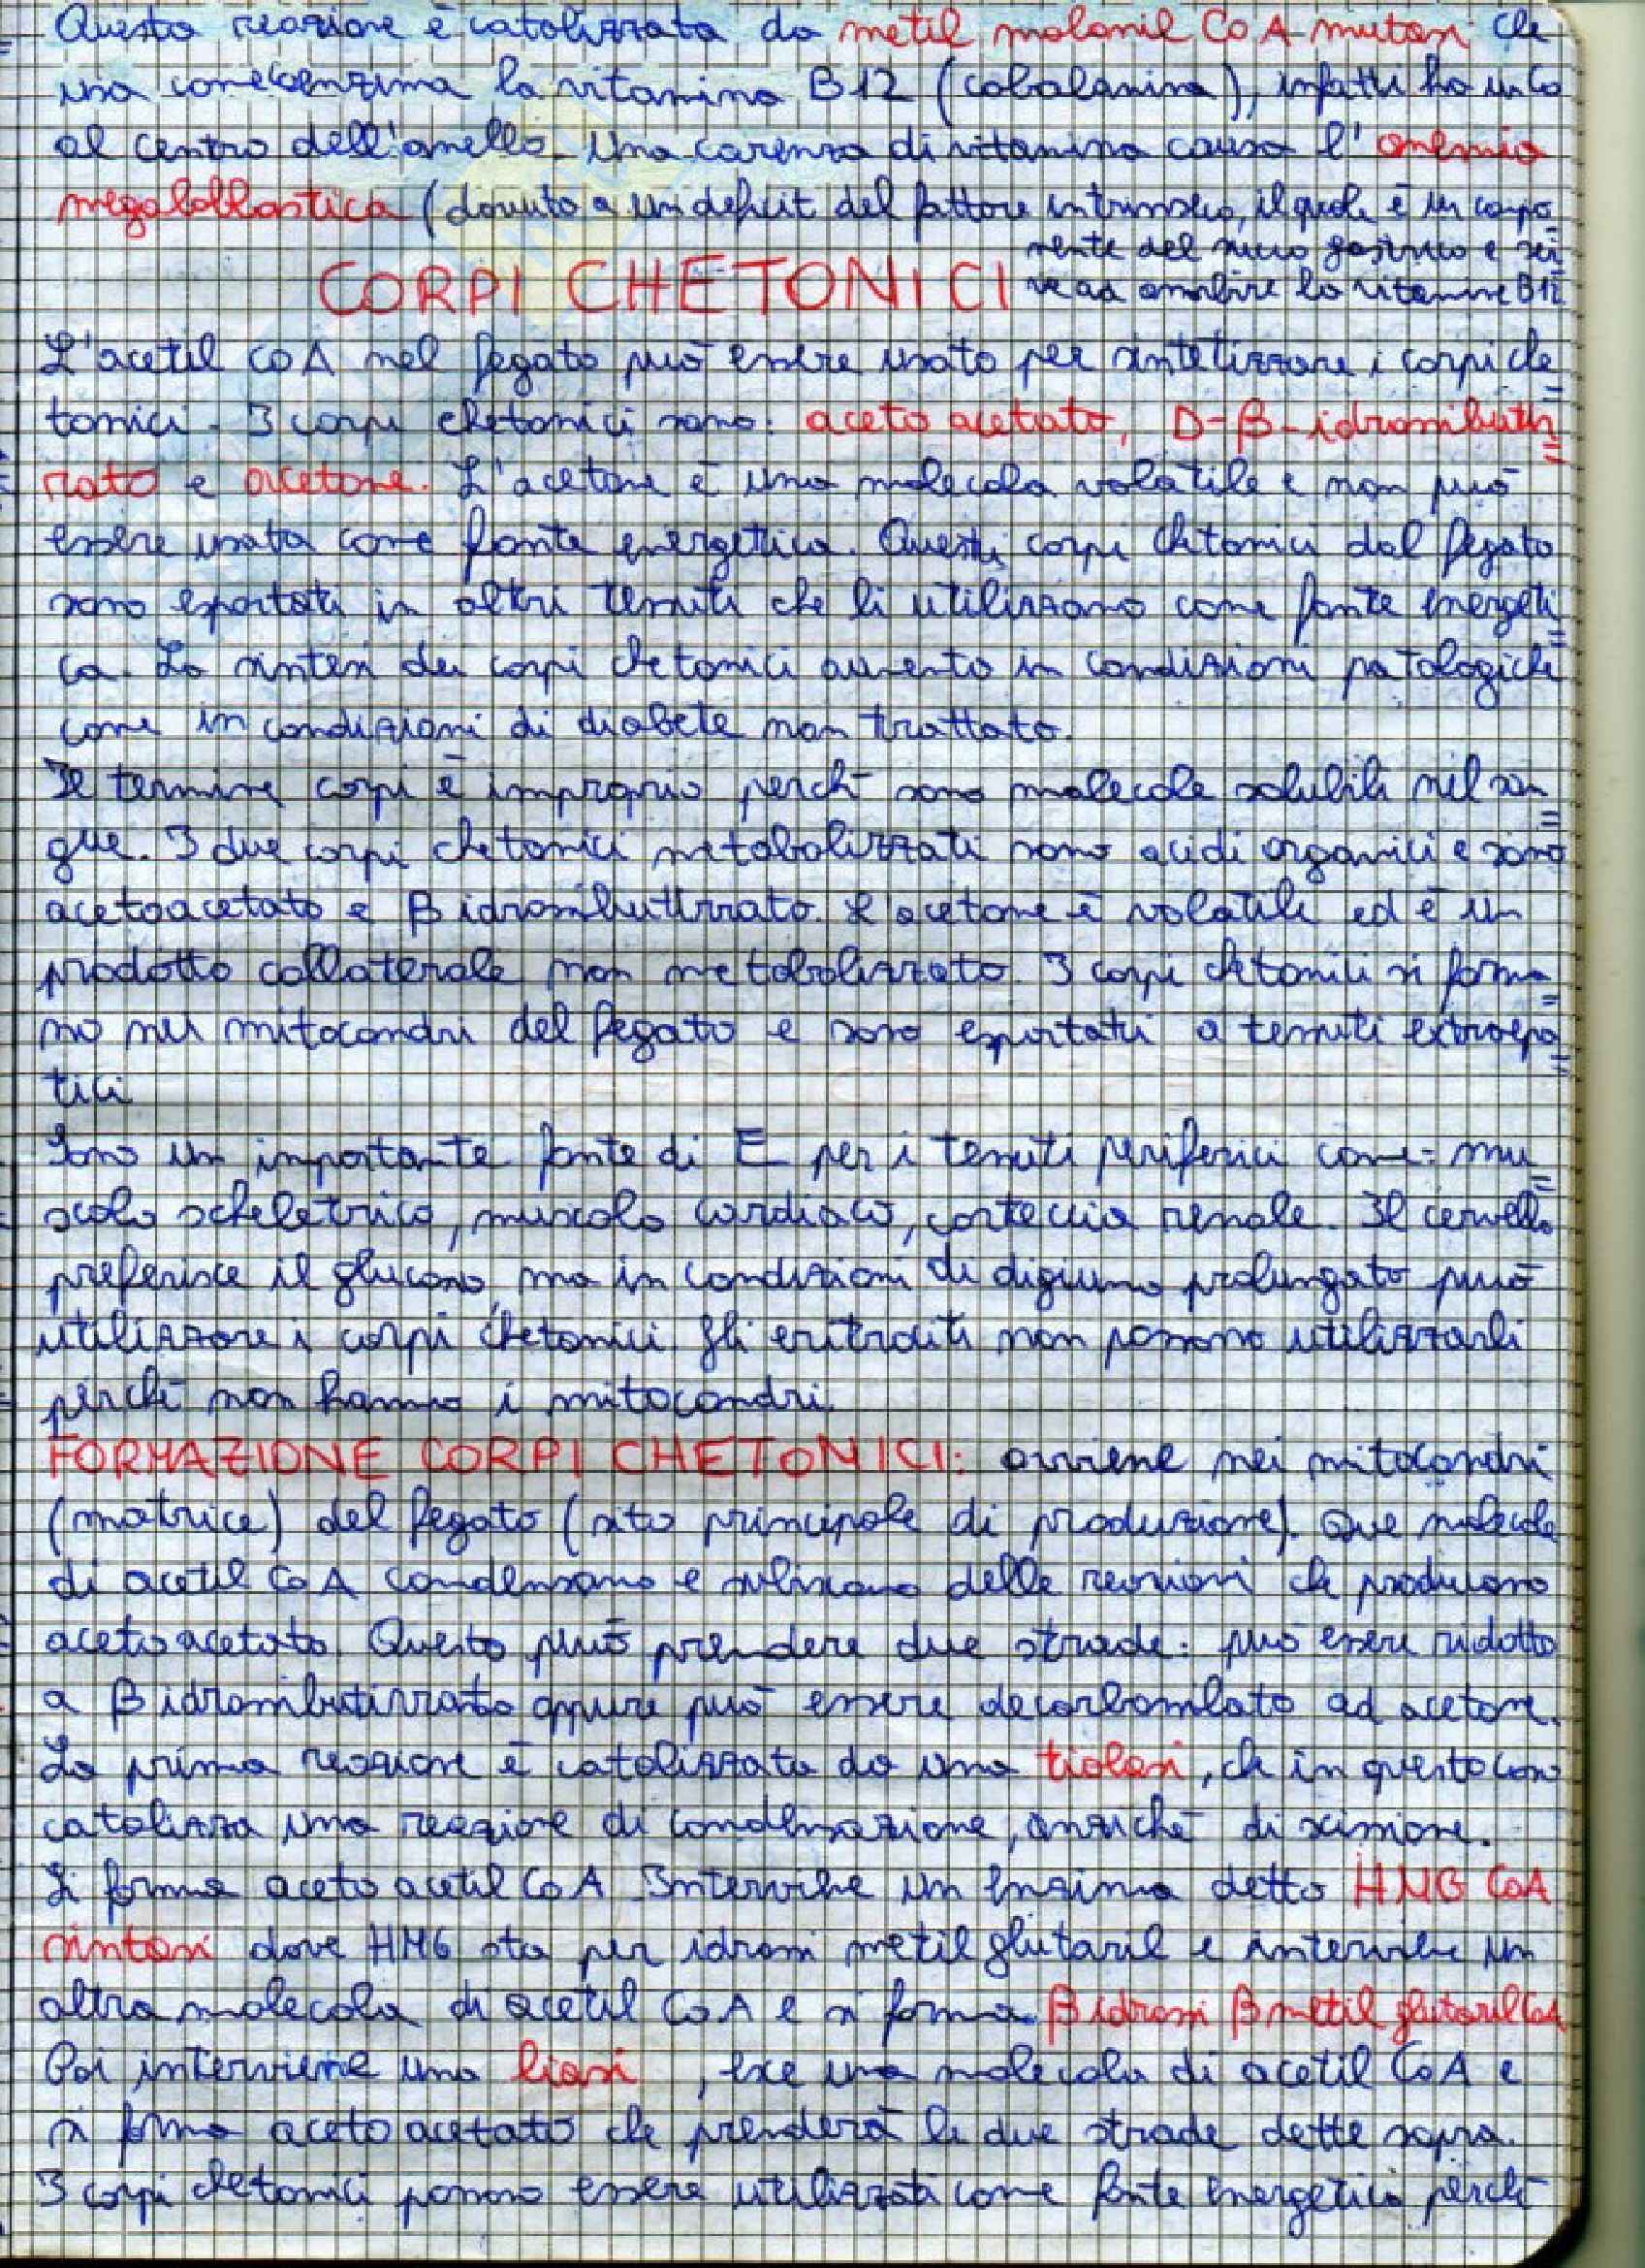 Questa reazione è catalizzata da metil malonil CoA mutasi che
usa come coenzima la vitamina B12 (cobalamina), infatti ha un Co
al centro dell'anello. Una carenza di vitamina causa l'anemia
megaloblastica (dovuta a un deficit del fattore intrinseco, il quale è un compo
nente del succo gastrico e ser
ve ad assorbire la vitamina B12
CORPI CHETONICI
L'acetil CoA nel fegato può essere usato per sintetizzare i corpi che
tonici. I corpi chetonici sono: aceto acetato, D-β-idrossibuti
rrato e acetone. L'acetone è una molecola volatile e non può
essere usata come fonte energetica. Questi corpi chetonici dal fegato
sono esportati in altri tessuti che li utilizzano come fonte energeti
ca. La sintesi dei corpi chetonici aumenta in condizioni patologiche
come in condizioni di diabete non trattato.
Il termine corpi è improprio perché sono molecole solubili nel san
gue. I due corpi chetonici metabolizzati sono acidi organici e sono
acetoacetato e β idrossibutirrato. L'acetone è volatile ed è un
prodotto collaterale non metabolizzato. I corpi chetonici si forma
no nei mitocondri del fegato e sono esportati a tessuti extraepa
tici
Sono un importante fonte di E per i tessuti periferici come: mu
scolo scheletrico, muscolo cardiaco, corteccia renale. Il cervello
preferisce il glucosio, ma in condizioni di digiuno prolungato può
utilizzare i corpi chetonici. Gli eritrociti non possono utilizzarli
perché non hanno i mitocondri.
FORMAZIONE CORPI CHETONICI: avviene nei mitocondri
(matrice) del fegato (sito principale di produzione). Due molecole
di acetil CoA condensano e subiscono delle reazioni che producono
aceto acetato. Questo può prendere due strade: può essere ridotto
a β idrossibutirrato oppure può essere decarbossilato ad acetone.
La prima reazione è catalizzata da una tiolasi, che in questo caso
catalizza una reazione di condensazione, anziché di scissione.
Si forma aceto acetil CoA. Interviene un enzima detto HMG CoA
sintasi dove HMG sta per idrossi metil glutaril e interviene un
altra molecola di acetil CoA e si forma β idrossi β metil glutaril CoA
Poi interviene una liasi, esce una molecola di acetil CoA e
si forma aceto acetato che prenderà le due strade dette sopra.
I corpi chetonici possono essere utilizzati come fonte energetica perché